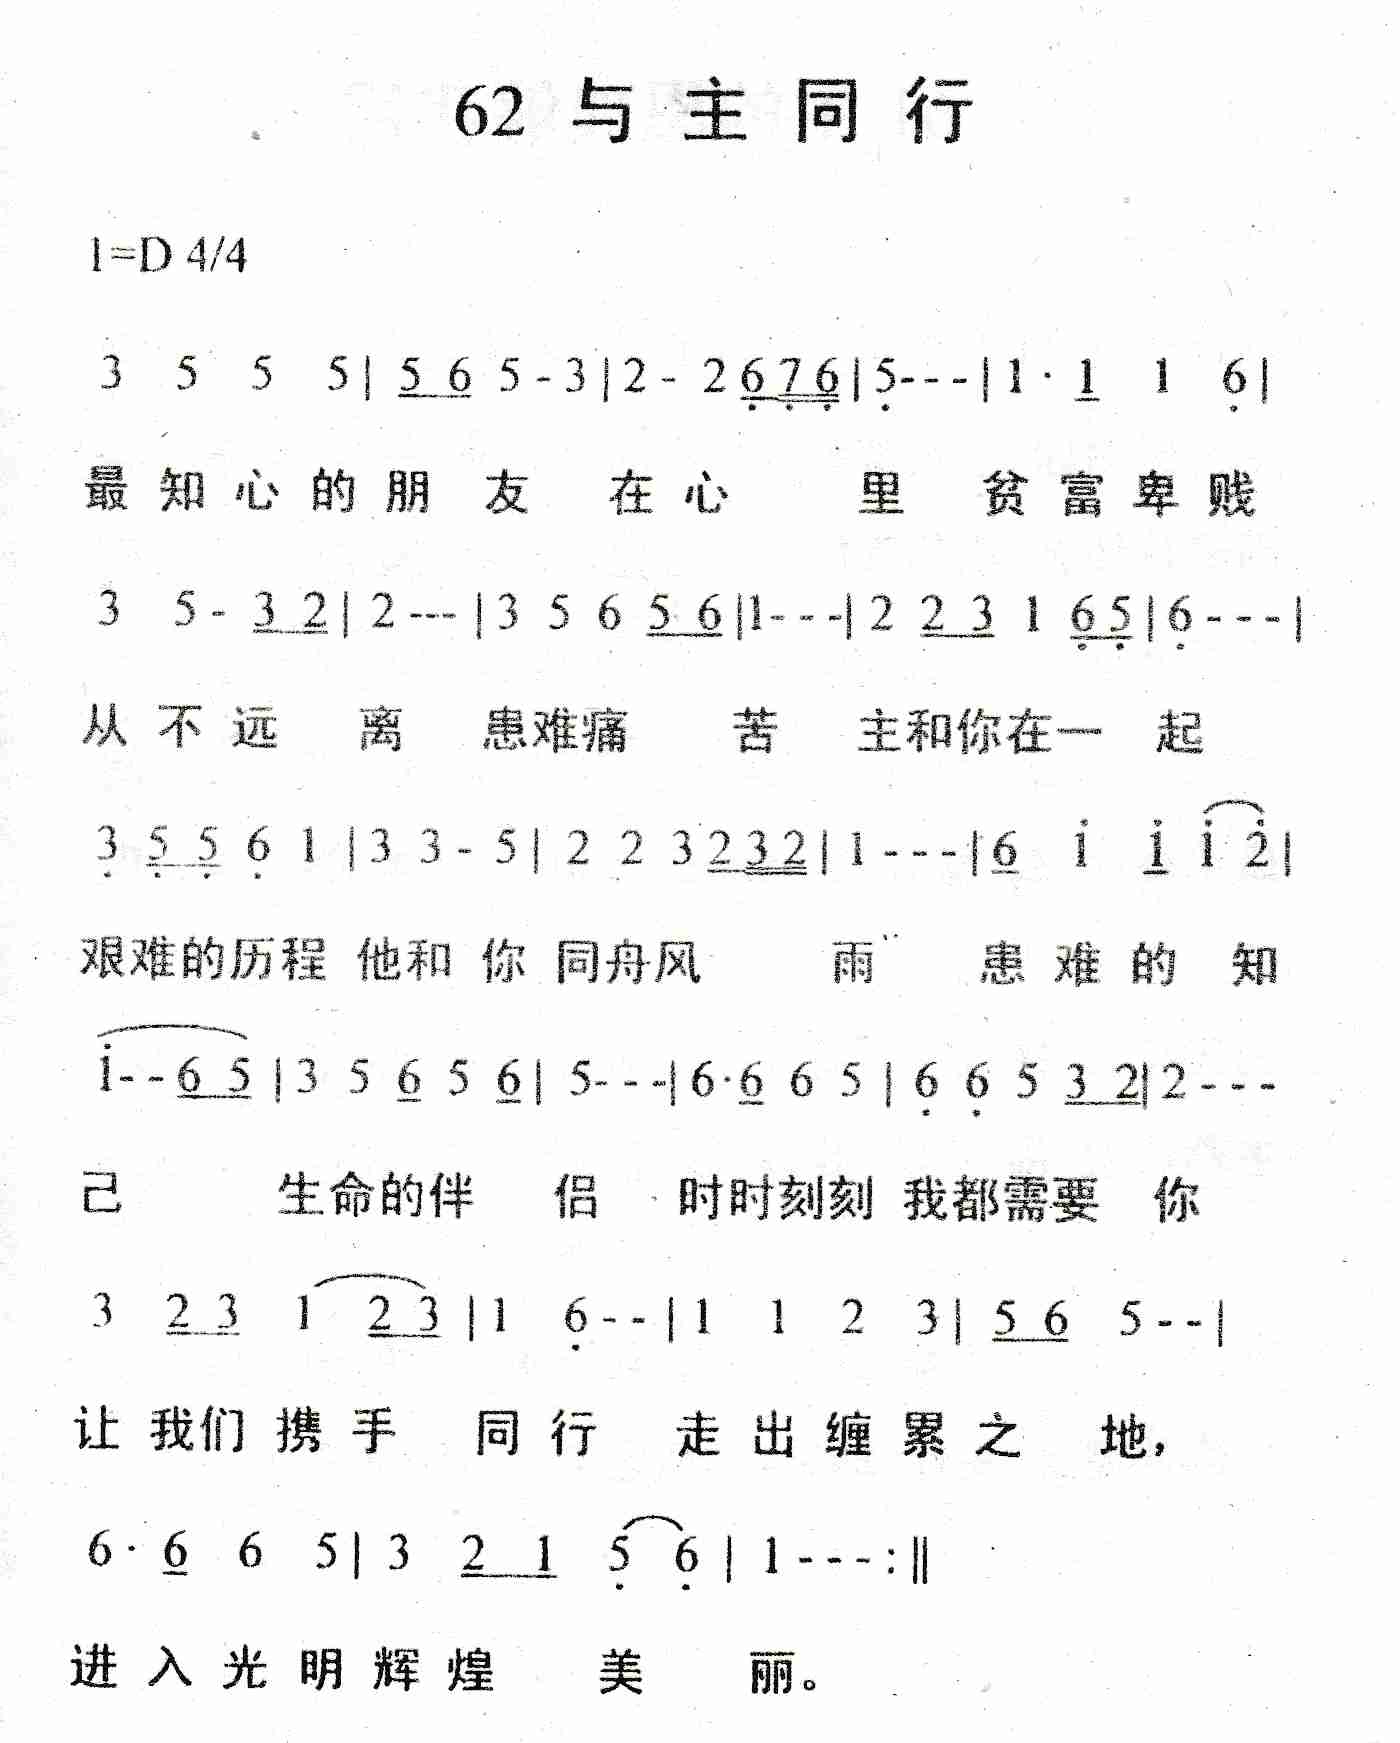 62 与 主 同 行
1=D 4/4
3 5 5 5 | 5 6 5 - 3 | 2 - 2 6 7 6 | 5 - - - | 1 · 1 1 6 |
最 知 心 的 朋 友 在 心 里 贫 富 卑 贱
3 5 - 3 2 | 2 --- | 3 5 6 5 6 | 1 - - - | 2 2 3 1 6 5 | 6 - - - |
从 不 远 离 患难痛 苦 主和你在一 起
3 5 5 6 1 | 3 3 - 5 | 2 2 3 2 3 2 | 1 - - - | 6 i i i 2 |
艰难的历程 他和 你 同舟风 雨 患 难 的 知
i - - 6 5 | 3 5 6 5 6 | 5 - - - | 6 · 6 6 5 | 6 6 5 3 2 | 2 - - -
己 生命的伴 侣 时时刻刻 我都需要 你
3 2 3 1 2 3 | 1 6 - - | 1 1 2 3 | 5 6 5 - - |
让 我们 携 手 同 行 走 出 缠 累 之 地,
6 · 6 6 5 | 3 2 1 5 6 | 1 - - - :||
进 入 光 明 辉 煌 美 丽。